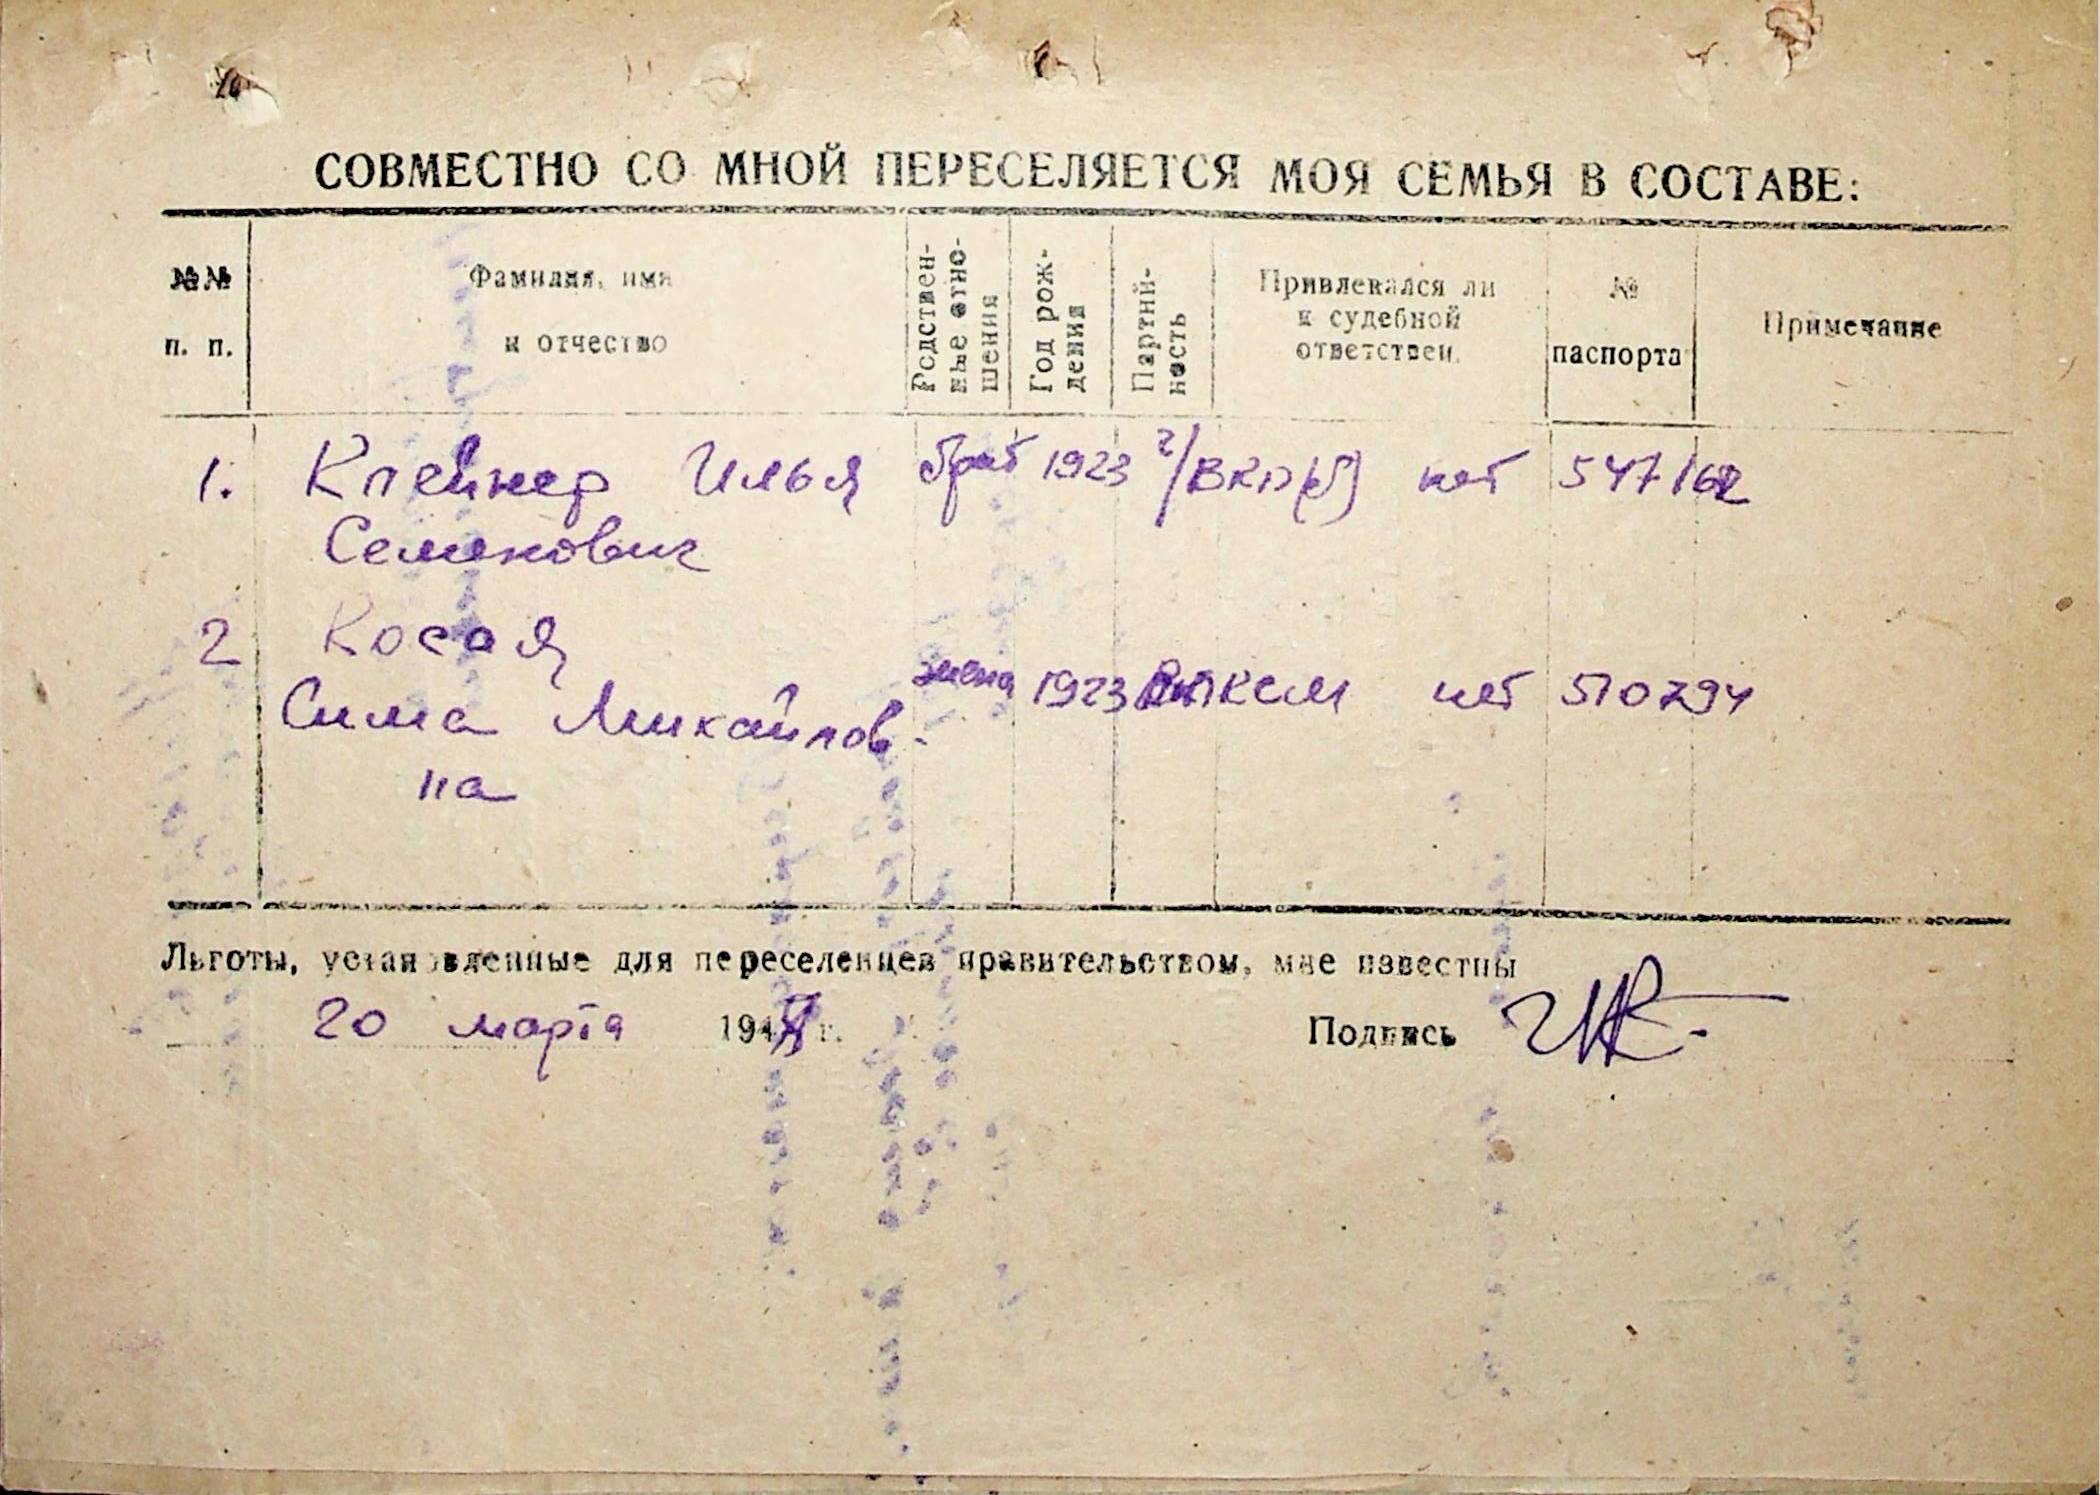 СОВМЕСТНО СО МНОЙ ПЕРЕСЕЛЯЕТСЯ МОЯ СЕМЬЯ В СОСТАВЕ:
№№ п. п.
Фамилия, имя и отчество
Родствен- ные отно- шения
Год рож- дения
Партий- ность
Привлекался ли к судебной ответствен.
№ паспорта
Примечание
1. Клейнер Илья брат 1923 ВКП(б) нет 547162
Семенович
2 Косая
Сима Михайлов- жена 1923 ВЛКСМ нет 510794
на
Льготы, установленные для переселенцев правительством, мне известны
20 марта 194 г. Подпись